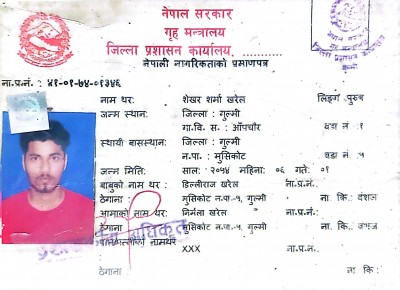 नेपाल सरकार
गृह मन्त्रालय
जिल्ला प्रशासन कार्यालय, ............
नेपाली नागरिकताको प्रमाणपत्र
ना.प्र.नं. : ४१-०१-७४-०१३४६
नाम थर: शेखर शर्मा खरेल लिङ्ग: पुरुष
जन्म स्थान: जिल्ला : गुल्मी
गा.वि. स. : आँपचौर वडा नं : १
स्थायी बासस्थान: जिल्ला : गुल्मी
न.पा. : मुसिकोट वडा नं : ५
जन्म मिति: साल: २०५४ महिना: ०६ गते: ०१
बाबुको नाम थर : डिल्लीराज खरेल ना.प्र.नं.:
ठेगाना : मुसिकोट न.पा.-५, गुल्मी ना. कि.: वंशज
आमाको नाम थर: निर्मला खरेल ना.प्र.नं.:
ठेगाना : मुसिकोट न.पा.-५, गुल्मी ना. कि.: वंशज
नामथर XXX ना.प्र.नं.:
ठेगाना : ना. कि: